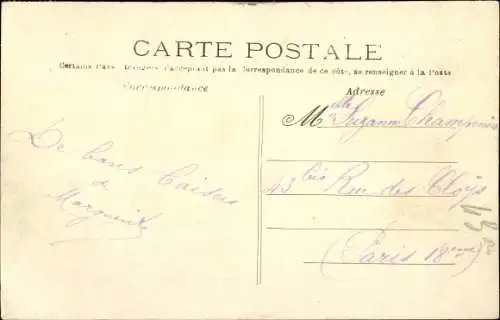 CARTE POSTALE
Certains Pays Etrangers n'acceptent pas la Correspondance de ce côté, se renseigner à la Poste
Correspondance
Adresse
Mlle Suzanne Champenois
De bons baisers
de
Marguerite
43 bis Rue des Cloÿs
(Paris 18eme)